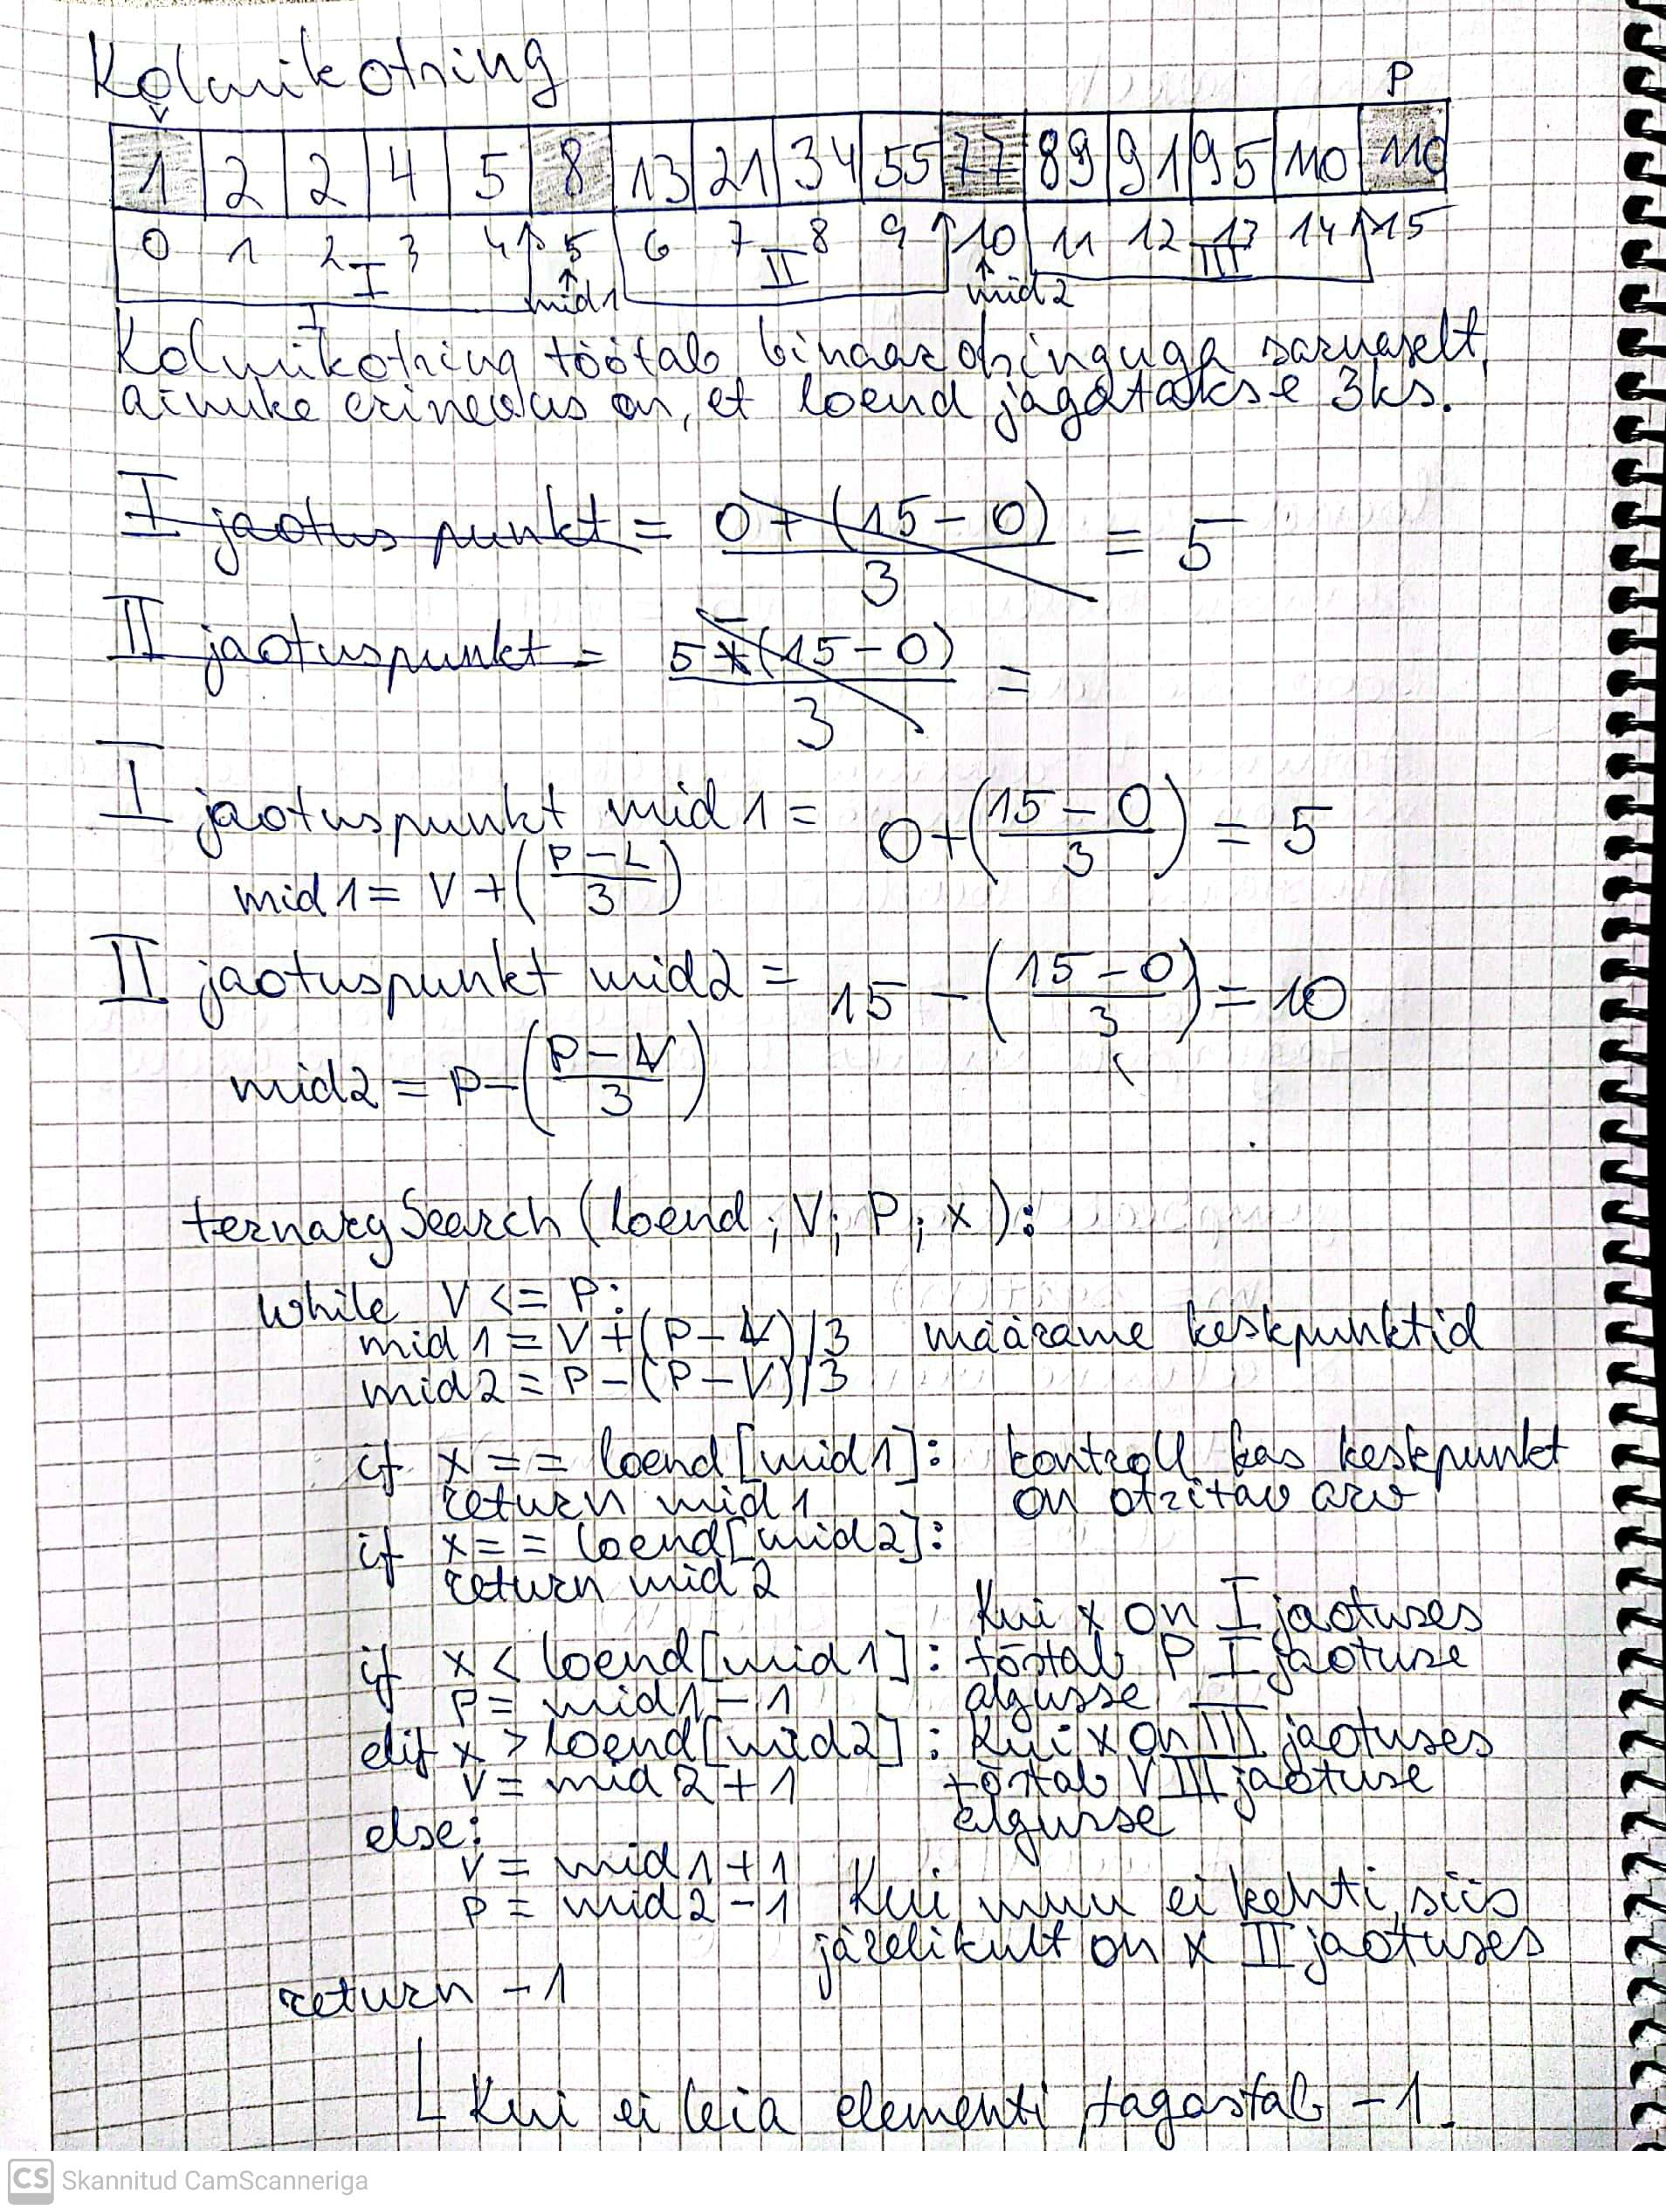 Kolmikotsing
V P
1 2 2 4 5 8 13 21 34 55 77 89 91 95 110 110
0 1 2 3 4 5 6 7 8 9 10 11 12 13 14 15
I mid1 II mid2 III
Kolmikotsing töötab binaarotsinguga sarnaselt,
ainuke erinevus on, et loend jagatakse 3ks.
I jaotus punkt = 0 + (15 - 0) / 3 = 5
II jaotuspunkt = 5 - (15 - 0) / 3 =
I jaotuspunkt mid1 = 0 + ((15 - 0) / 3) = 5
mid1 = V + ((P - L) / 3)
II jaotuspunkt mid2 = 15 - ((15 - 0) / 3) = 10
mid2 = P - ((P - V) / 3)
ternarySearch (loend ; V ; P ; x ) :
while V <= P :
mid1 = V + (P - V) / 3 määrame keskpunktid
mid2 = P - (P - V) / 3
if x == loend[mid1] : kontroll kas keskpunkt
return mid1 on otsitav arv
if x == loend[mid2] :
return mid2
Kui x on I jaotuses
if x < loend[mid1] : tõstab P I jaotuse
P = mid1 - 1 algusse
elif x > loend[mid2] : Kui x on III jaotuses
V = mid2 + 1 tõstab V III jaotuse
else : algusse
V = mid1 + 1
P = mid2 - 1 Kui muu ei kehti, siis
järelikult on x II jaotuses
return -1
Kui ei leia elementi tagastab -1.
CS Skannitud CamScanneriga